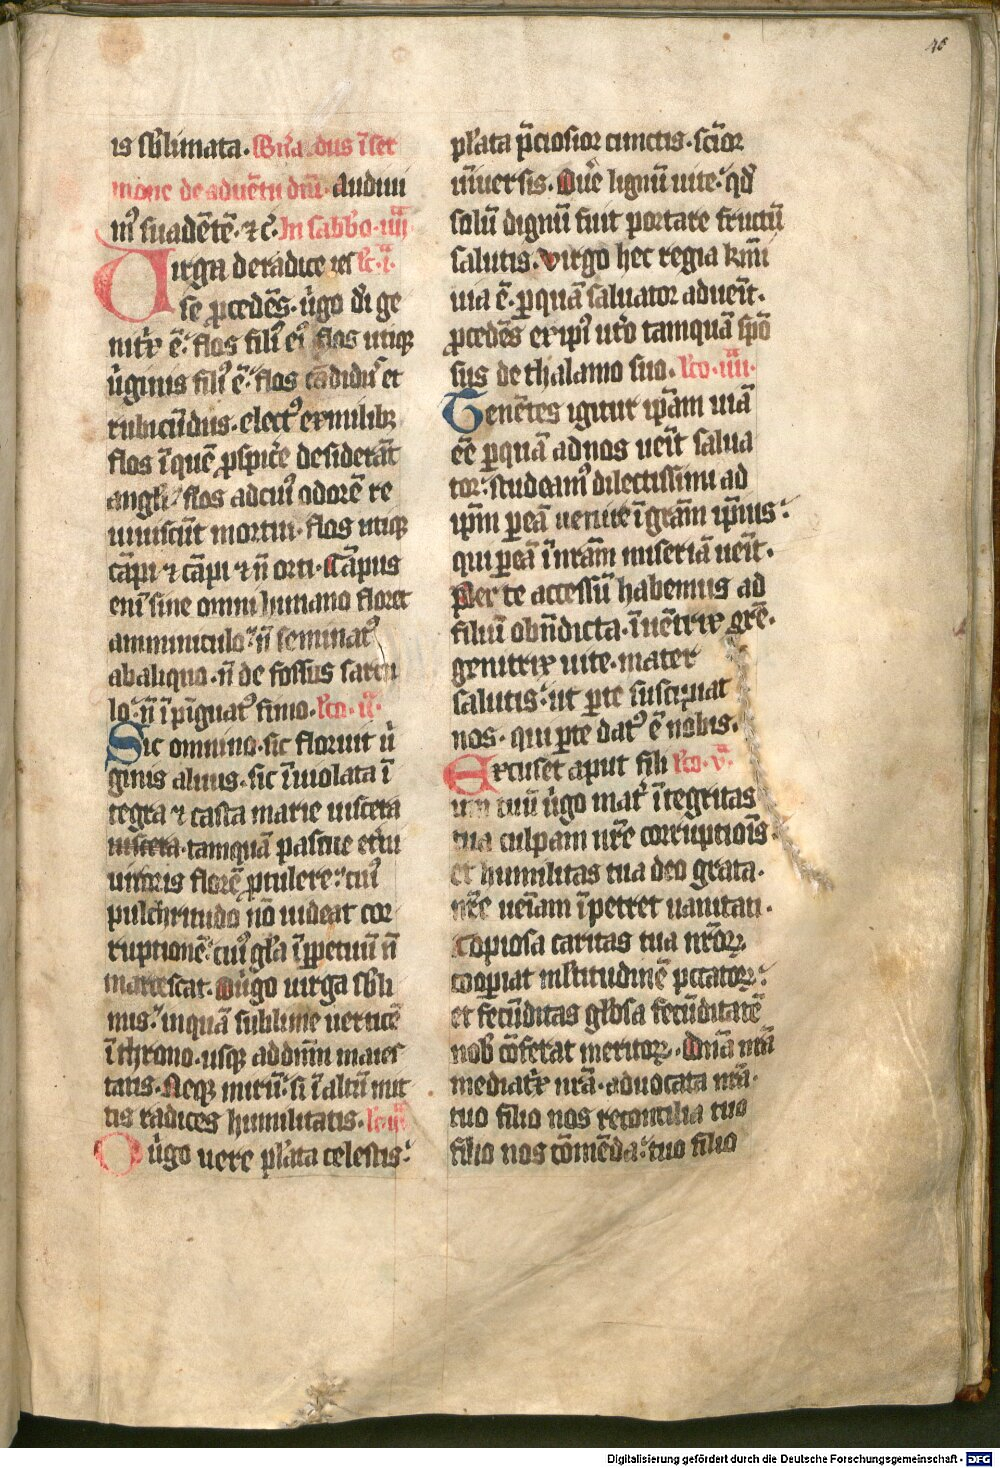 46
is sb̄limata. Bn̄a.dus ī ser
mone de aduētu dn̄i. Audiui
mꝰ suadētē. ⁊ c̄. In sabb̄o. iiii
Uirga de radice ies lc̄. i.
se ꝓcedēs. ūgo dī ge
nitx̄ ē. flos filiꝰ eiꝰ. flos utiqꝫ
ūginis filiꝰ ē. flos cādidus et
rubicūdus. electꝰ ex milibꝫ
flos ī quē ꝓspic̄e desiderāt
angli. flos ad cuiꝰ odorē re
uiuiscūt mortui. flos utiqꝫ
cāpi ⁊ cāpi ⁊ n̄ orti. Cāpus
eni sine omni humano floret
amminiculo. n̄ seminatꝰ
ab aliquo. n̄ de fossus sarcu
lo. n̄ īpīguatꝰ fimo. lc̄o. ii.
Sic omnino. sic floruit ū
ginis aluus. sic īuiolata ī
tegra ⁊ casta marie uiscera
uiscera. tamquā pascue et̄ni
uiroris florē ꝓtulere. cuiꝰ
pulchritudo nō uideat cor
ruptionē. cuiꝰ gl̄a ī ꝑpetuū n̄
marcescat. O ūgo uirga sb̄li
mis. in quā sublime uerticē
ī throno. usqꝫ ad dn̄m maies
tatis. Neqꝫ mirū. si ī altū mit
tis radices humilitatis. lc̄o. iii
O ūgo uere pl̄ata celestis.
pl̄ata p̄ciosior cunctis. sc̄ior
ūiuersis. O u̅e lignū uite. qd̄
solū dignū fuit portare fructū
salutis. virgo hec regia ipsa
uia ē. ꝑ quā saluator adueīt.
ꝓcedēs ex ipiꝰ ut̄o tamquā spō
sus de thalamo suo. lc̄o. iiii.
Tenētes igitur ip̄am uiā
ēē ꝑ quā ad nos ueīt salua
tor. studeamꝰ dilectissimi ad
ip̄m ꝑ eā uenire ī grām ip̄ius.
qui ꝑ eā ī nrām miseriā ueīt.
Per te accessū habemus ad
filiū o bn̄dicta. īuētrix grē.
genitrix uite. mater
salutis. ut ꝑ te suscipiat
nos. qui ꝑ te datꝰ ē nobis.
Excuset aput fili lc̄o. v.
um tuū ūgo mat̄ ītegritas
tua culpam nr̄e corruptiōis.
et humilitas tua deo grata.
nr̄e ueīam īpetret uanitati.
Copiosa caritas tua nr̄oꝝ
cooꝑiat ml̄titudinē pctatoꝝ.
et fecūditas gl̄osa fecūditatē
nob̄ cōferat meritoꝝ. Dn̄a nrā
mediatx̄ nrā. aduocata nrā.
tuo filio nos reconcilia tuo
filio nos cōmēda. tuo filio
Digitalisierung gefördert durch die Deutsche Forschungsgemeinschaft - DFG